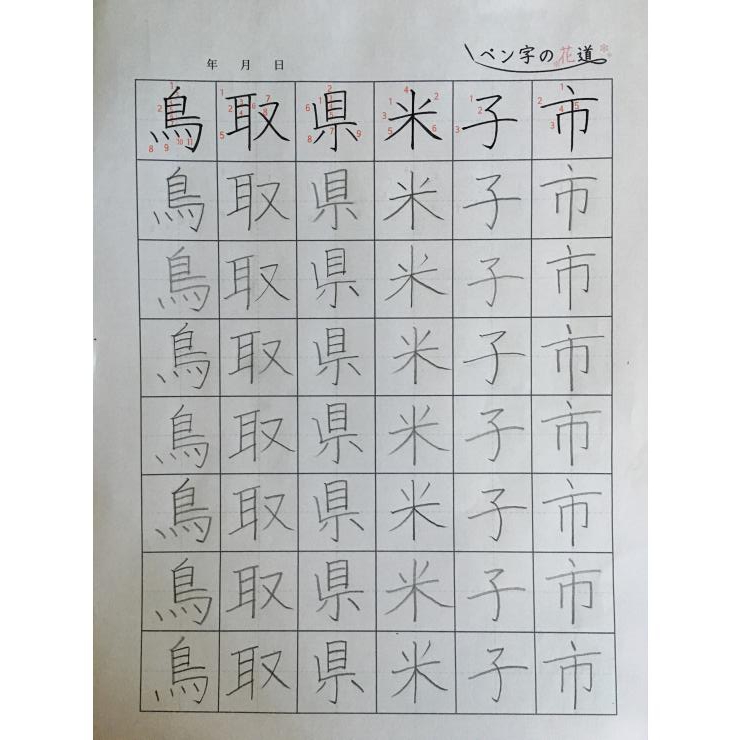 年 月 日
ペン字の花道
鳥取県米子市
鳥取県米子市
鳥取県米子市
鳥取県米子市
鳥取県米子市
鳥取県米子市
鳥取県米子市
鳥取県米子市